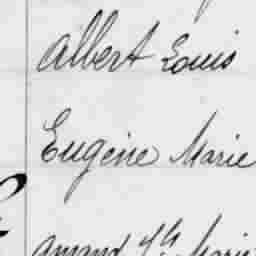 Albert Louis
Eugène Marie
Amand Marie